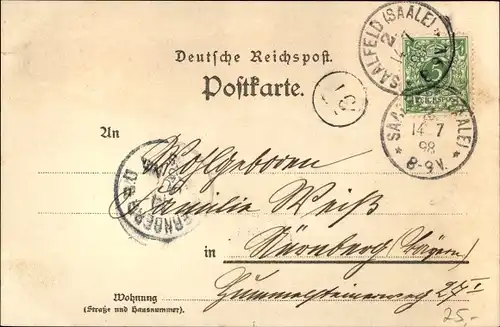 SAALFELD (SAALE)
Deutsche Reichspost.
Postkarte.
5
SAALFELD (SAALE)
14 7
98
8-9V.
An
Wohlgeboren
Familie Weiß
in Nürnberg (Bayern)
Wohnung
(Straße und Hausnummer).
Hummelsteinerweg 27 I
25,-